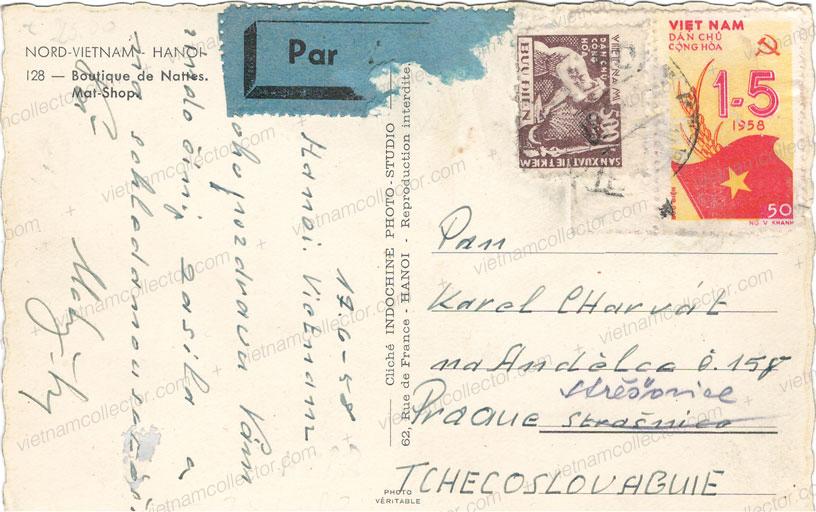 NORD-VIETNAM - HANOI
128 — Boutique de Nattes.
Mat-Shop.
Par
Hanoi. Vietnam 17.6-58
Vám
srdečný zasílá a
na schledanou
Cliché INDOCHINE PHOTO-STUDIO
62, Rue de France - HANOI - Reproduction interdite.
PHOTO
VÉRITABLE
VIET NAM
DÂN CHỦ
CỘNG HÒA
BƯU ĐIỆN
500
SẢN XUẤT TIẾT KIỆM
VIỆT NAM
DÂN CHỦ
CỘNG HÒA
1-5
1958
50
NG. V. KHANH
Pan
Karel CHarvát
na Andělce č. 158
Střešovice
Prague Strašnice
TCHECOSLOVAQUIE
vietnamcollector.com